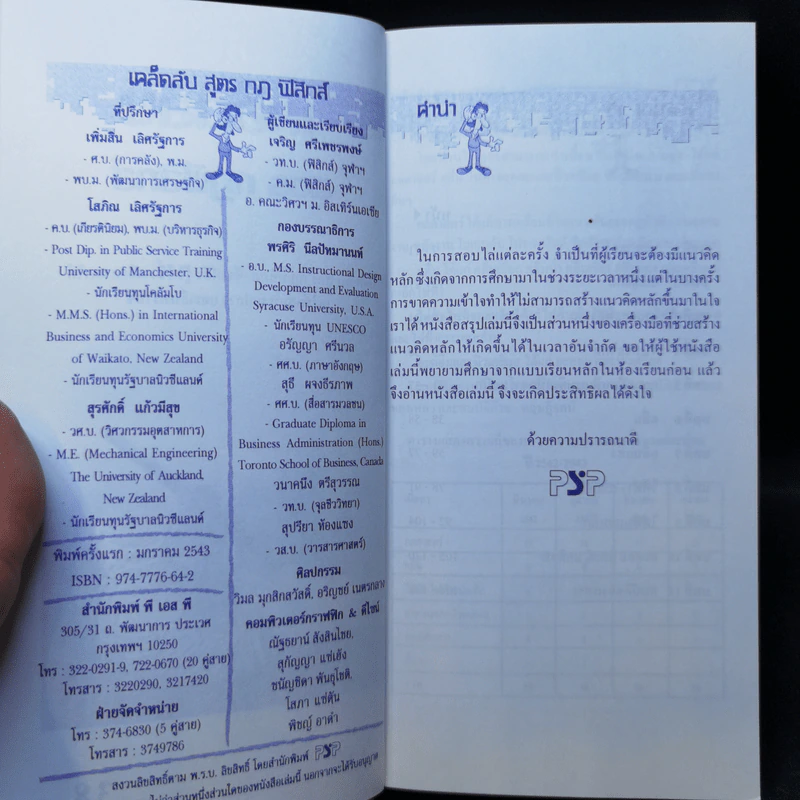 เคล็ดลับ สูตร กฎ ฟิสิกส์
ที่ปรึกษา
เพิ่มสิน เลิศรัฐการ
- ศ.บ. (การคลัง), พ.ม.
- พบ.ม. (พัฒนาการเศรษฐกิจ)
โสภิณ เลิศรัฐการ
- ศ.บ. (เกียรตินิยม), พบ.ม. (บริหารธุรกิจ)
- Post Dip. in Public Service Training
University of Manchester, U.K.
- นักเรียนทุนโคลัมโบ
- M.M.S. (Hons.) in International
Business and Economics University
of Waikato, New Zealand
- นักเรียนทุนรัฐบาลนิวซีแลนด์
สุรศักดิ์ แก้วมีสุข
- วศ.บ. (วิศวกรรมอุตสาหการ)
- M.E. (Mechanical Engineering)
The University of Auckland,
New Zealand
- นักเรียนทุนรัฐบาลนิวซีแลนด์
พิมพ์ครั้งแรก : มกราคม 2543
ISBN : 974-7776-64-2
สำนักพิมพ์ พี เอส พี
305/31 ถ. พัฒนาการ ประเวศ
กรุงเทพฯ 10250
โทร : 322-0291-9, 722-0670 (20 คู่สาย)
โทรสาร : 3220290, 3217420
ฝ่ายจัดจำหน่าย
โทร : 374-6830 (5 คู่สาย)
โทรสาร : 3749786
ผู้เขียนและเรียบเรียง
เจริญ ศรีเพชรพงษ์
- วท.บ. (ฟิสิกส์) จุฬาฯ
- ค.ม. (ฟิสิกส์) จุฬาฯ
อ. คณะวิศวฯ ม. อีสเทิร์นเอเชีย
กองบรรณาธิการ
พรศิริ นีลปัทมานนท์
- อ.บ., M.S. Instructional Design
Development and Evaluation
Syracuse University, U.S.A.
- นักเรียนทุน UNESCO
อรัญญา ศรีนวล
- ศศ.บ. (ภาษาอังกฤษ)
สุธี ผจงธีรภาพ
- ศศ.บ. (สื่อสารมวลชน)
- Graduate Diploma in
Business Administration (Hons.)
Toronto School of Business, Canada
วนาคนึง ตรีสุวรรณ
- วท.บ. (จุลชีววิทยา)
สุปรียา ห้องแซง
- วส.บ. (วารสารศาสตร์)
ศิลปกรรม
วิมล มุกสิกสวัสดิ์, อริญชย์ เนตรกลาง
คอมพิวเตอร์กราฟฟิก & ดีไซน์
ณัฐธยาน์ สังสินไชย,
สุกัญญา แซ่เฮ้ง
ชนัญชิดา พันธุโชติ,
โสภา แซ่ตัน
พิชญ์ อาดำ
สงวนลิขสิทธิ์ตาม พ.ร.บ. ลิขสิทธิ์ โดยสำนักพิมพ์ PSP
ส่วนหนึ่งส่วนใดของหนังสือเล่มนี้ นอกจากจะได้รับอนุญาต
คำนำ
ในการสอบไล่แต่ละครั้ง จำเป็นที่ผู้เรียนจะต้องมีแนวคิด
หลักซึ่งเกิดจากการศึกษามาในช่วงระยะเวลาหนึ่ง แต่ในบางครั้ง
การขาดความเข้าใจทำให้ไม่สามารถสร้างแนวคิดหลักขึ้นมาในใจ
เราได้ หนังสือสรุปเล่มนี้จึงเป็นส่วนหนึ่งของเครื่องมือที่ช่วยสร้าง
แนวคิดหลักให้เกิดขึ้นได้ในเวลาอันจำกัด ขอให้ผู้ใช้หนังสือ
เล่มนี้พยายามศึกษาจากแบบเรียนหลักในห้องเรียนก่อน แล้ว
จึงอ่านหนังสือเล่มนี้ จึงจะเกิดประสิทธิผลได้ดังใจ
ด้วยความปรารถนาดี
PSP